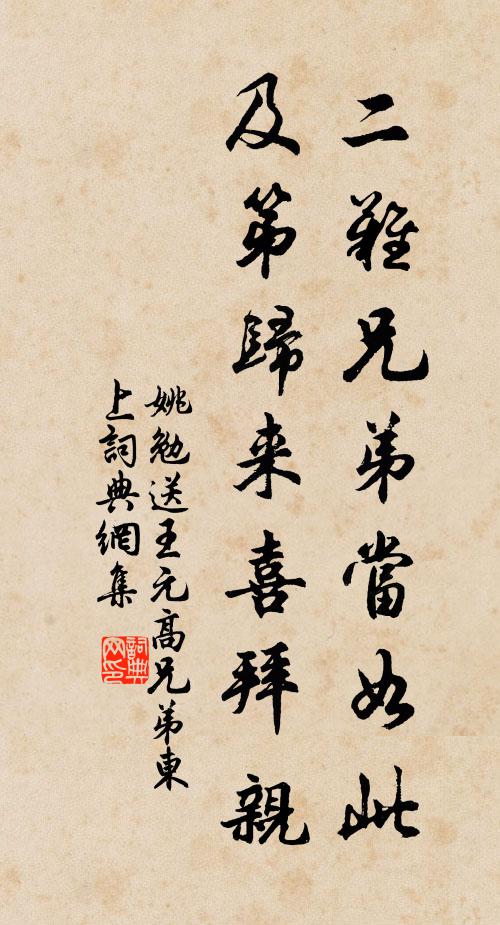 二難兄弟當如此
及第歸来喜拜親
姚勉送王元高兄弟東
上詞典網集
詞典
网印